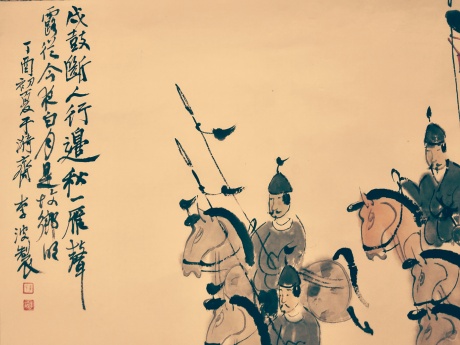 戍鼓斷人行邊秋一雁聲
露從今夜白月是故鄉明
丁酉初夏于齋 李波製